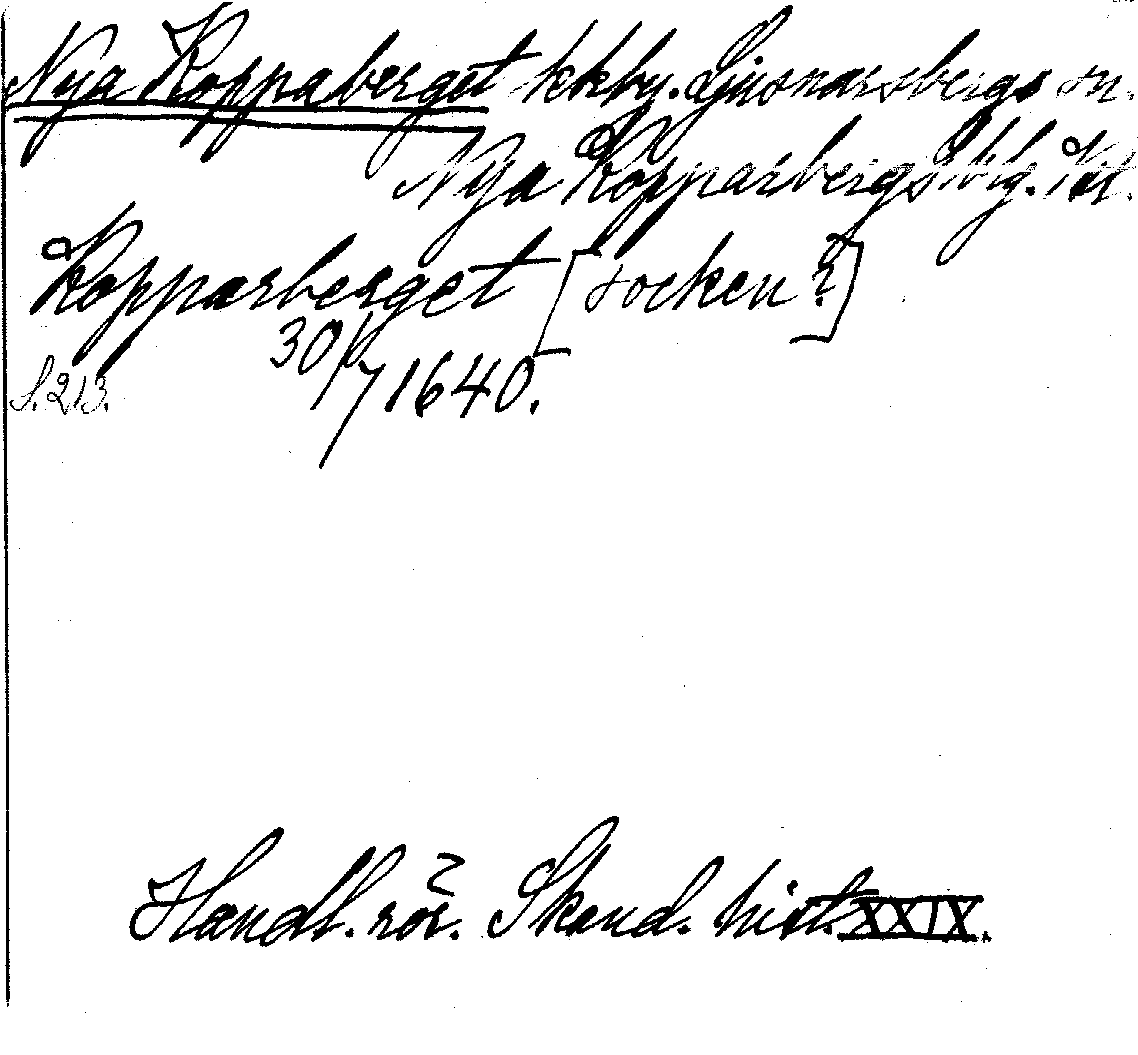 Nya Koppaberget kkby. Ljusnarsbergs sn.
Nya Kopparbergs blg. Vstl.
Kopparberget [socken?]
30/7 1640.
S. 213.
Handl. rör. Skand. hist. XXIX.